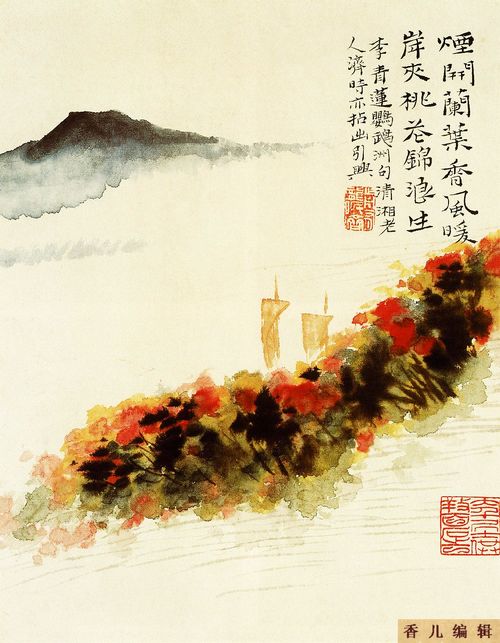 煙開蘭葉香風暖
岸夾桃花錦浪生
李青蓮鸚鵡洲句清湘老
人濟時亦拈引興
香儿编辑